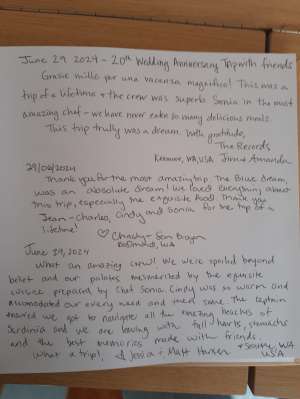 June 29, 2024 - 20th Wedding Anniversary Trip with friends
Grazie mille per una vacanza magnifica! This was a
trip of a lifetime + the crew was superb. Sonia is the most
amazing chef - we have never eaten so many delicious meals.
This trip trully was a dream. With gratitude,
The Records
WA, USA Jim + Amanda
29/06/2024
Thank you for the most amazing trip. The Blue dream
was an absolute dream! We loved everything about
this trip, especially the exquisite food. Thank you
Jean-Charles, Cindy and Sonia for the trip of a
lifetime!
♡
WA
June 29, 2024
What an amazing crew! We were spoiled beyond
belief and our palates mesmerized by the exquisite
cuisine prepared by Chef Sonia. Cindy was so warm and
accomodated our every need and then some. The captain
insured we got to navigate all the amazing beaches of
Sardinia and we are leaving with full hearts, stomachs
and the best memories made with friends.
What a trip! Jessica + Matt Seattle, WA
USA